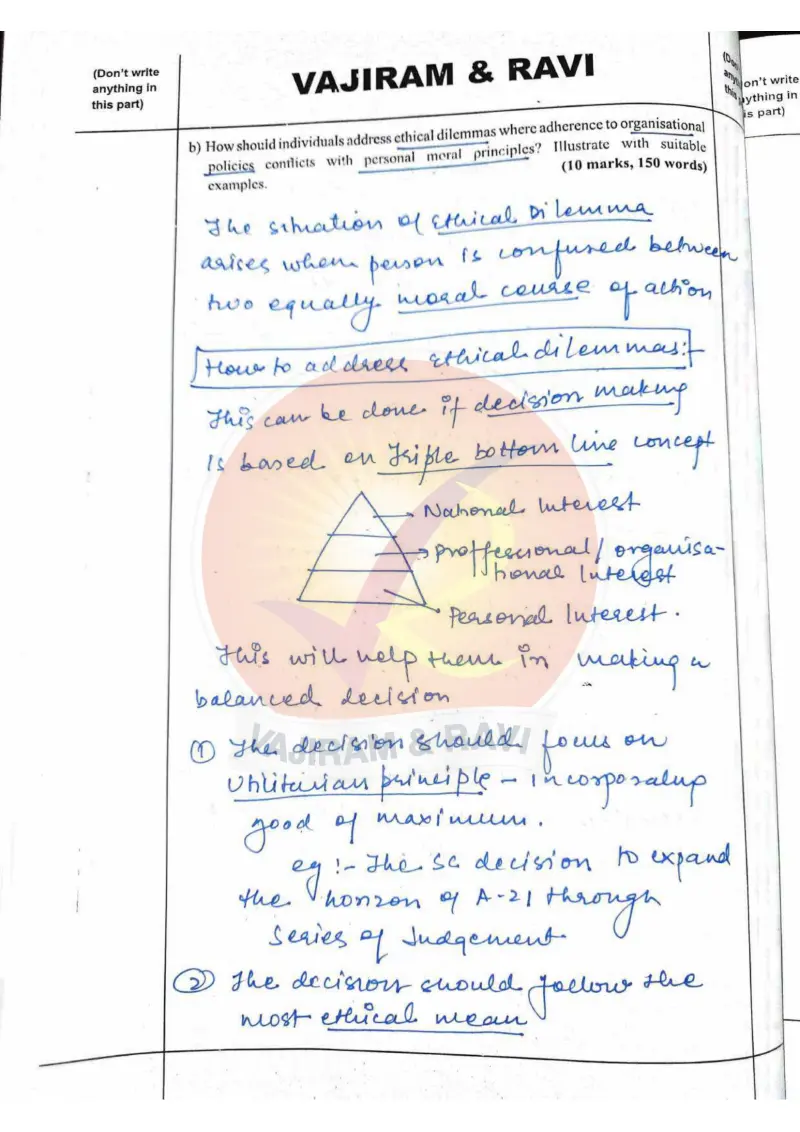 (Don't write
anything in
this part)
VAJIRAM & RAVI
on't write
ything in
is part)
b) How should individuals address ethical dilemmas where adherence to organisational
policies conflicts with personal moral principles? Illustrate with suitable
examples.
(10 marks, 150 words)
The situation of Ethical Dilemma
arises when person is confused between
two equally moral course of action
How to address Ethical dilemmas:-
This can be done if decision making
is based on Triple bottom line concept
National Interest
Proffessional / organisa-
tional Interest
Personal Interest.
This will help them in making a
balanced decision
VAJIRAM & RAVI
① The decision should focus on
Utilitarian principle - incorporating
good of maximum.
eg :- The SC decision to expand
the horizon of A-21 through
Series of Judgement
② The decision should follow the
most ethical mean